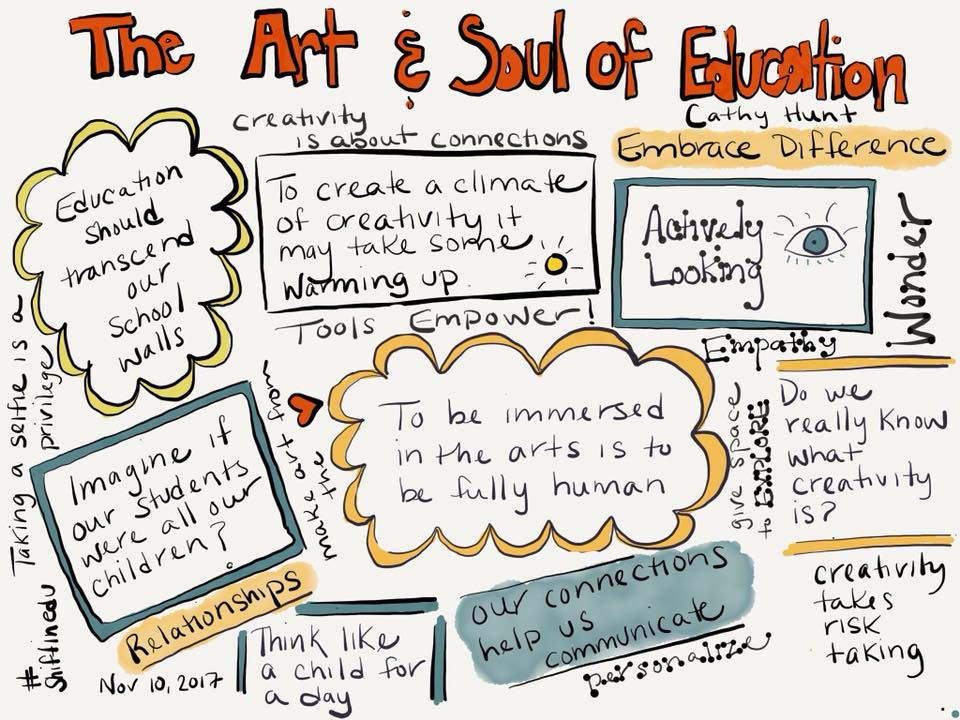 The Art & Soul of Education
Cathy Hunt
creativity
is about connections
Embrace Difference
Education
should
transcend
our
School
walls
To create a climate
of creativity it
may take some
warming up.
Actively
Looking
Wonder
Tools Empower!
Empathy
Taking a selfie is a
privilege
#shiftinedu
Imagine if
our students
were all our
children?
make art from
the
To be immersed
in the arts is to
be fully human
give space
to EXPLORE
Do we
really know
what
creativity
is?
Relationships
Nov 10, 2017
Think like
a child for
a day
our connections
help us
communicate
personalize
creativity
takes
risk
taking